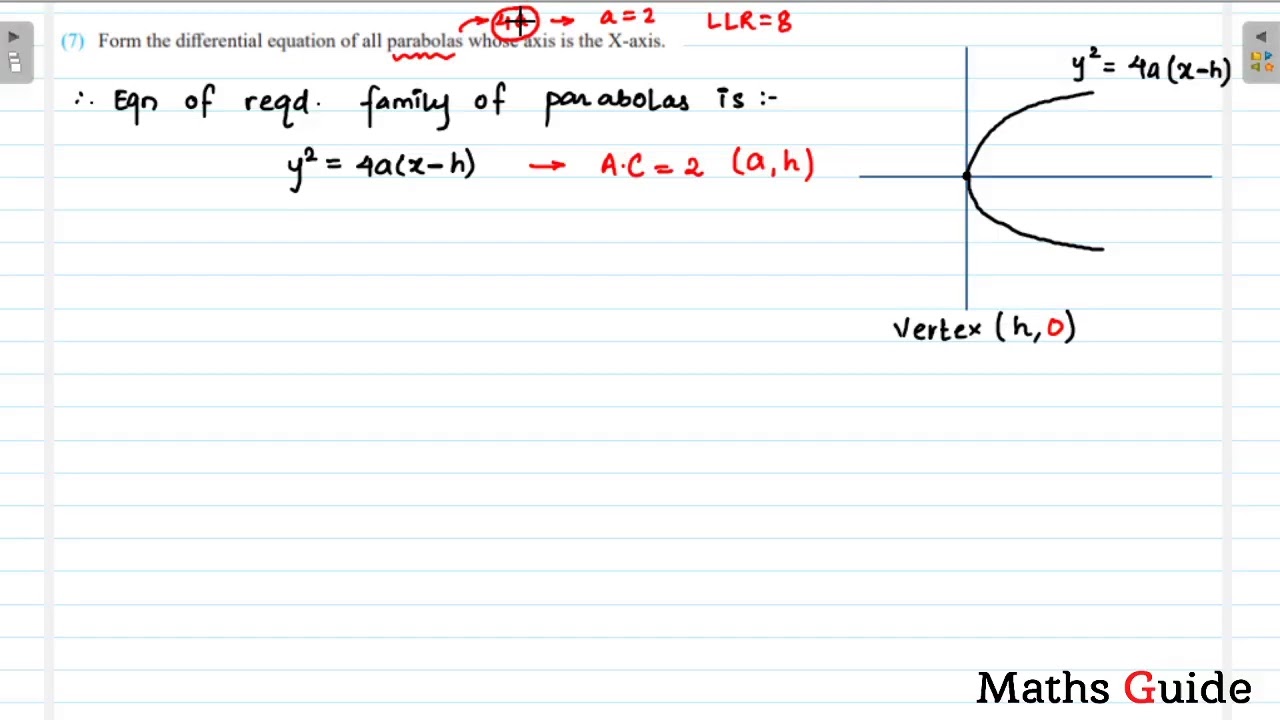 4a → a = 2 LLR = 8
(7) Form the differential equation of all parabolas whose axis is the X-axis.
y² = 4a(x-h)
∴ Eqn of reqd. family of parabolas is :-
y² = 4a(x-h) → A.C = 2 (a, h)
Vertex (h, 0)
Maths Guide